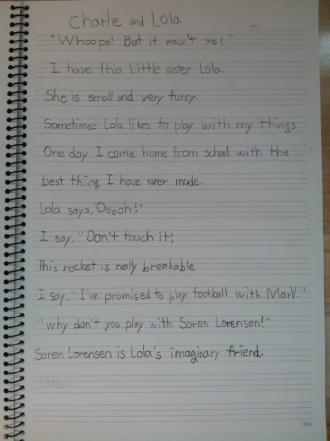 Charlie and Lola
"Whoops! But it wasn't me!"
I have this little sister Lola.
She is small and very funny.
Sometimes Lola likes to play with my things
One day I come home from school with the
best thing I have ever made.
Lola says, "Ooooh!"
I say, "Don't touch it!
This rocket is really breakable
I say, "I've promised to play football with Marv."
"why don't you play with Soren Lorensen!"
Soren Lorensen is Lola's imaginary friend.